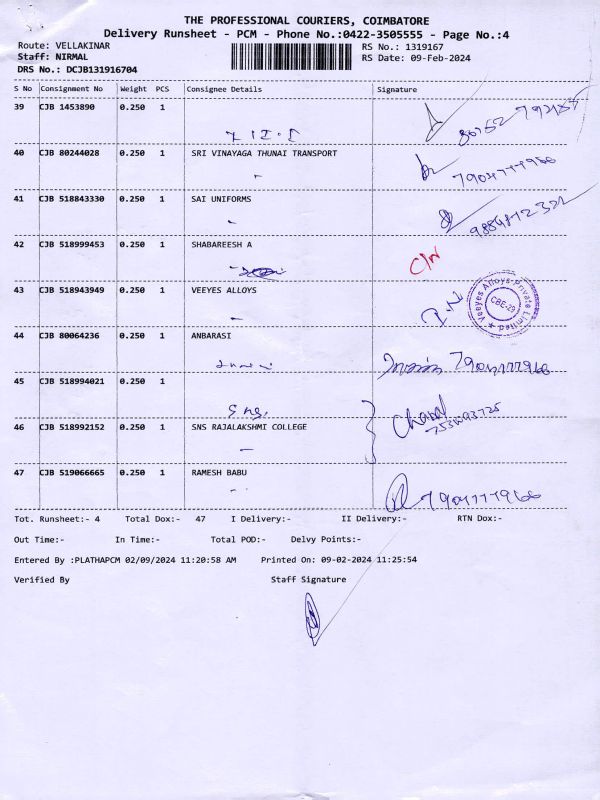 THE PROFESSIONAL COURIERS, COIMBATORE
Delivery Runsheet - PCM - Phone No.:0422-3505555 - Page No.:4
Route: VELLAKINAR
Staff: NIRMAL
DRS No.: DCJB131916704
RS No.: 1319167
RS Date: 09-Feb-2024
S No Consignment No Weight PCS Consignee Details Signature
39 CJB 1453890 0.250 1
40 CJB 80244028 0.250 1 SRI VINAYAGA THUNAI TRANSPORT
7904777966
41 CJB 518843330 0.250 1 SAI UNIFORMS
42 CJB 518999453 0.250 1 SHABAREESH A
C/N
43 CJB 518943949 0.250 1 VEEYES ALLOYS
Veeyes Alloys Private Limited ★
CBE-29
44 CJB 80064236 0.250 1 ANBARASI
7904777966
45 CJB 518994021 0.250 1
46 CJB 518992152 0.250 1 SNS RAJALAKSHMI COLLEGE
47 CJB 519066665 0.250 1 RAMESH BABU
7904777966
Tot. Runsheet:- 4 Total Dox:- 47 I Delivery:- II Delivery:- RTN Dox:-
Out Time:- In Time:- Total POD:- Delvy Points:-
Entered By :PLATHAPCM 02/09/2024 11:20:58 AM Printed On: 09-02-2024 11:25:54
Verified By Staff Signature